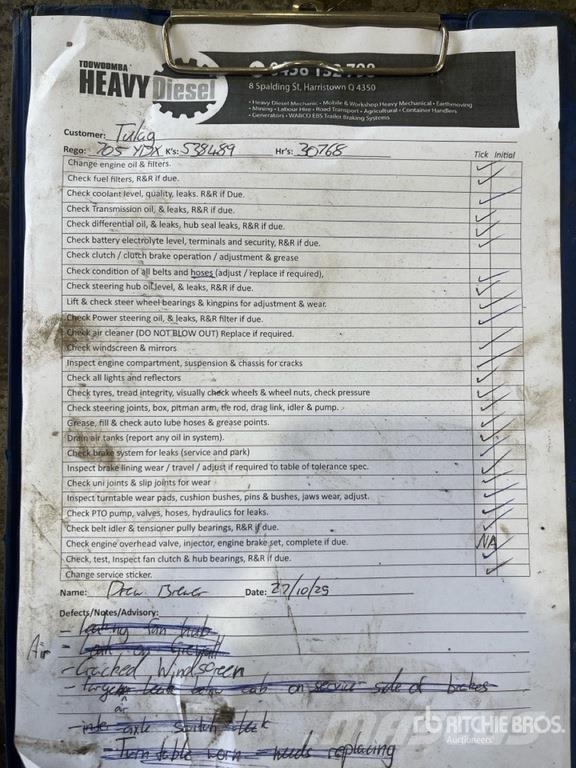 TOOWOOMBA
HEAVY Diesel
8 Spalding St, Harristown Q 4350
• Heavy Diesel Mechanic • Mobile & Workshop Heavy Mechanical • Earthmoving
• Mining • Labour Hire • Road Transport • Agricultural • Container Handlers
• Generators • WABCO EBS Trailer Braking Systems
Customer: Tulag
Rego: 705 YDX K's: 538489 Hr's: 30768 Tick Initial
Change engine oil & filters.
Check fuel filters, R&R if due.
Check coolant level, quality, leaks. R&R if Due.
Check Transmission oil, & leaks, R&R if due.
Check differential oil, & leaks, hub seal leaks, R&R if due.
Check battery electrolyte level, terminals and security, R&R if due.
Check clutch / clutch brake operation / adjustment & grease
Check condition of all belts and hoses (adjust / replace if required),
Check steering hub oil level, & leaks, R&R if due.
Lift & check steer wheel bearings & kingpins for adjustment & wear.
Check Power steering oil, & leaks, R&R filter if due.
Check air cleaner (DO NOT BLOW OUT) Replace if required.
Check windscreen & mirrors
Inspect engine compartment, suspension & chassis for cracks
Check all lights and reflectors
Check tyres, tread integrity, visually check wheels & wheel nuts, check pressure
Check steering joints, box, pitman arm, tie rod, drag link, idler & pump.
Grease, fill & check auto lube hoses & grease points.
Drain air tanks (report any oil in system).
Check brake system for leaks (service and park)
Inspect brake lining wear / travel / adjust if required to table of tolerance spec.
Check uni joints & slip joints for wear
Inspect turntable wear pads, cushion bushes, pins & bushes, jaws wear, adjust.
Check PTO pump, valves, hoses, hydraulics for leaks.
Check belt idler & tensioner pully bearings, R&R if due.
Check engine overhead valve, injector, engine brake set, complete if due. NA
Check, test, Inspect fan clutch & hub bearings, R&R if due.
Change service sticker.
Name: Drew Brewer Date: 27/10/25
Defects/Notes/Advisory:
- Leaking fan hub
Air - Leak on
- Cracked Windscreen
- leak below cab on service side of brakes
air
- inter axle switch leak
- Turn table worn - needs replacing
rb RITCHIE BROS.
Auctioneers